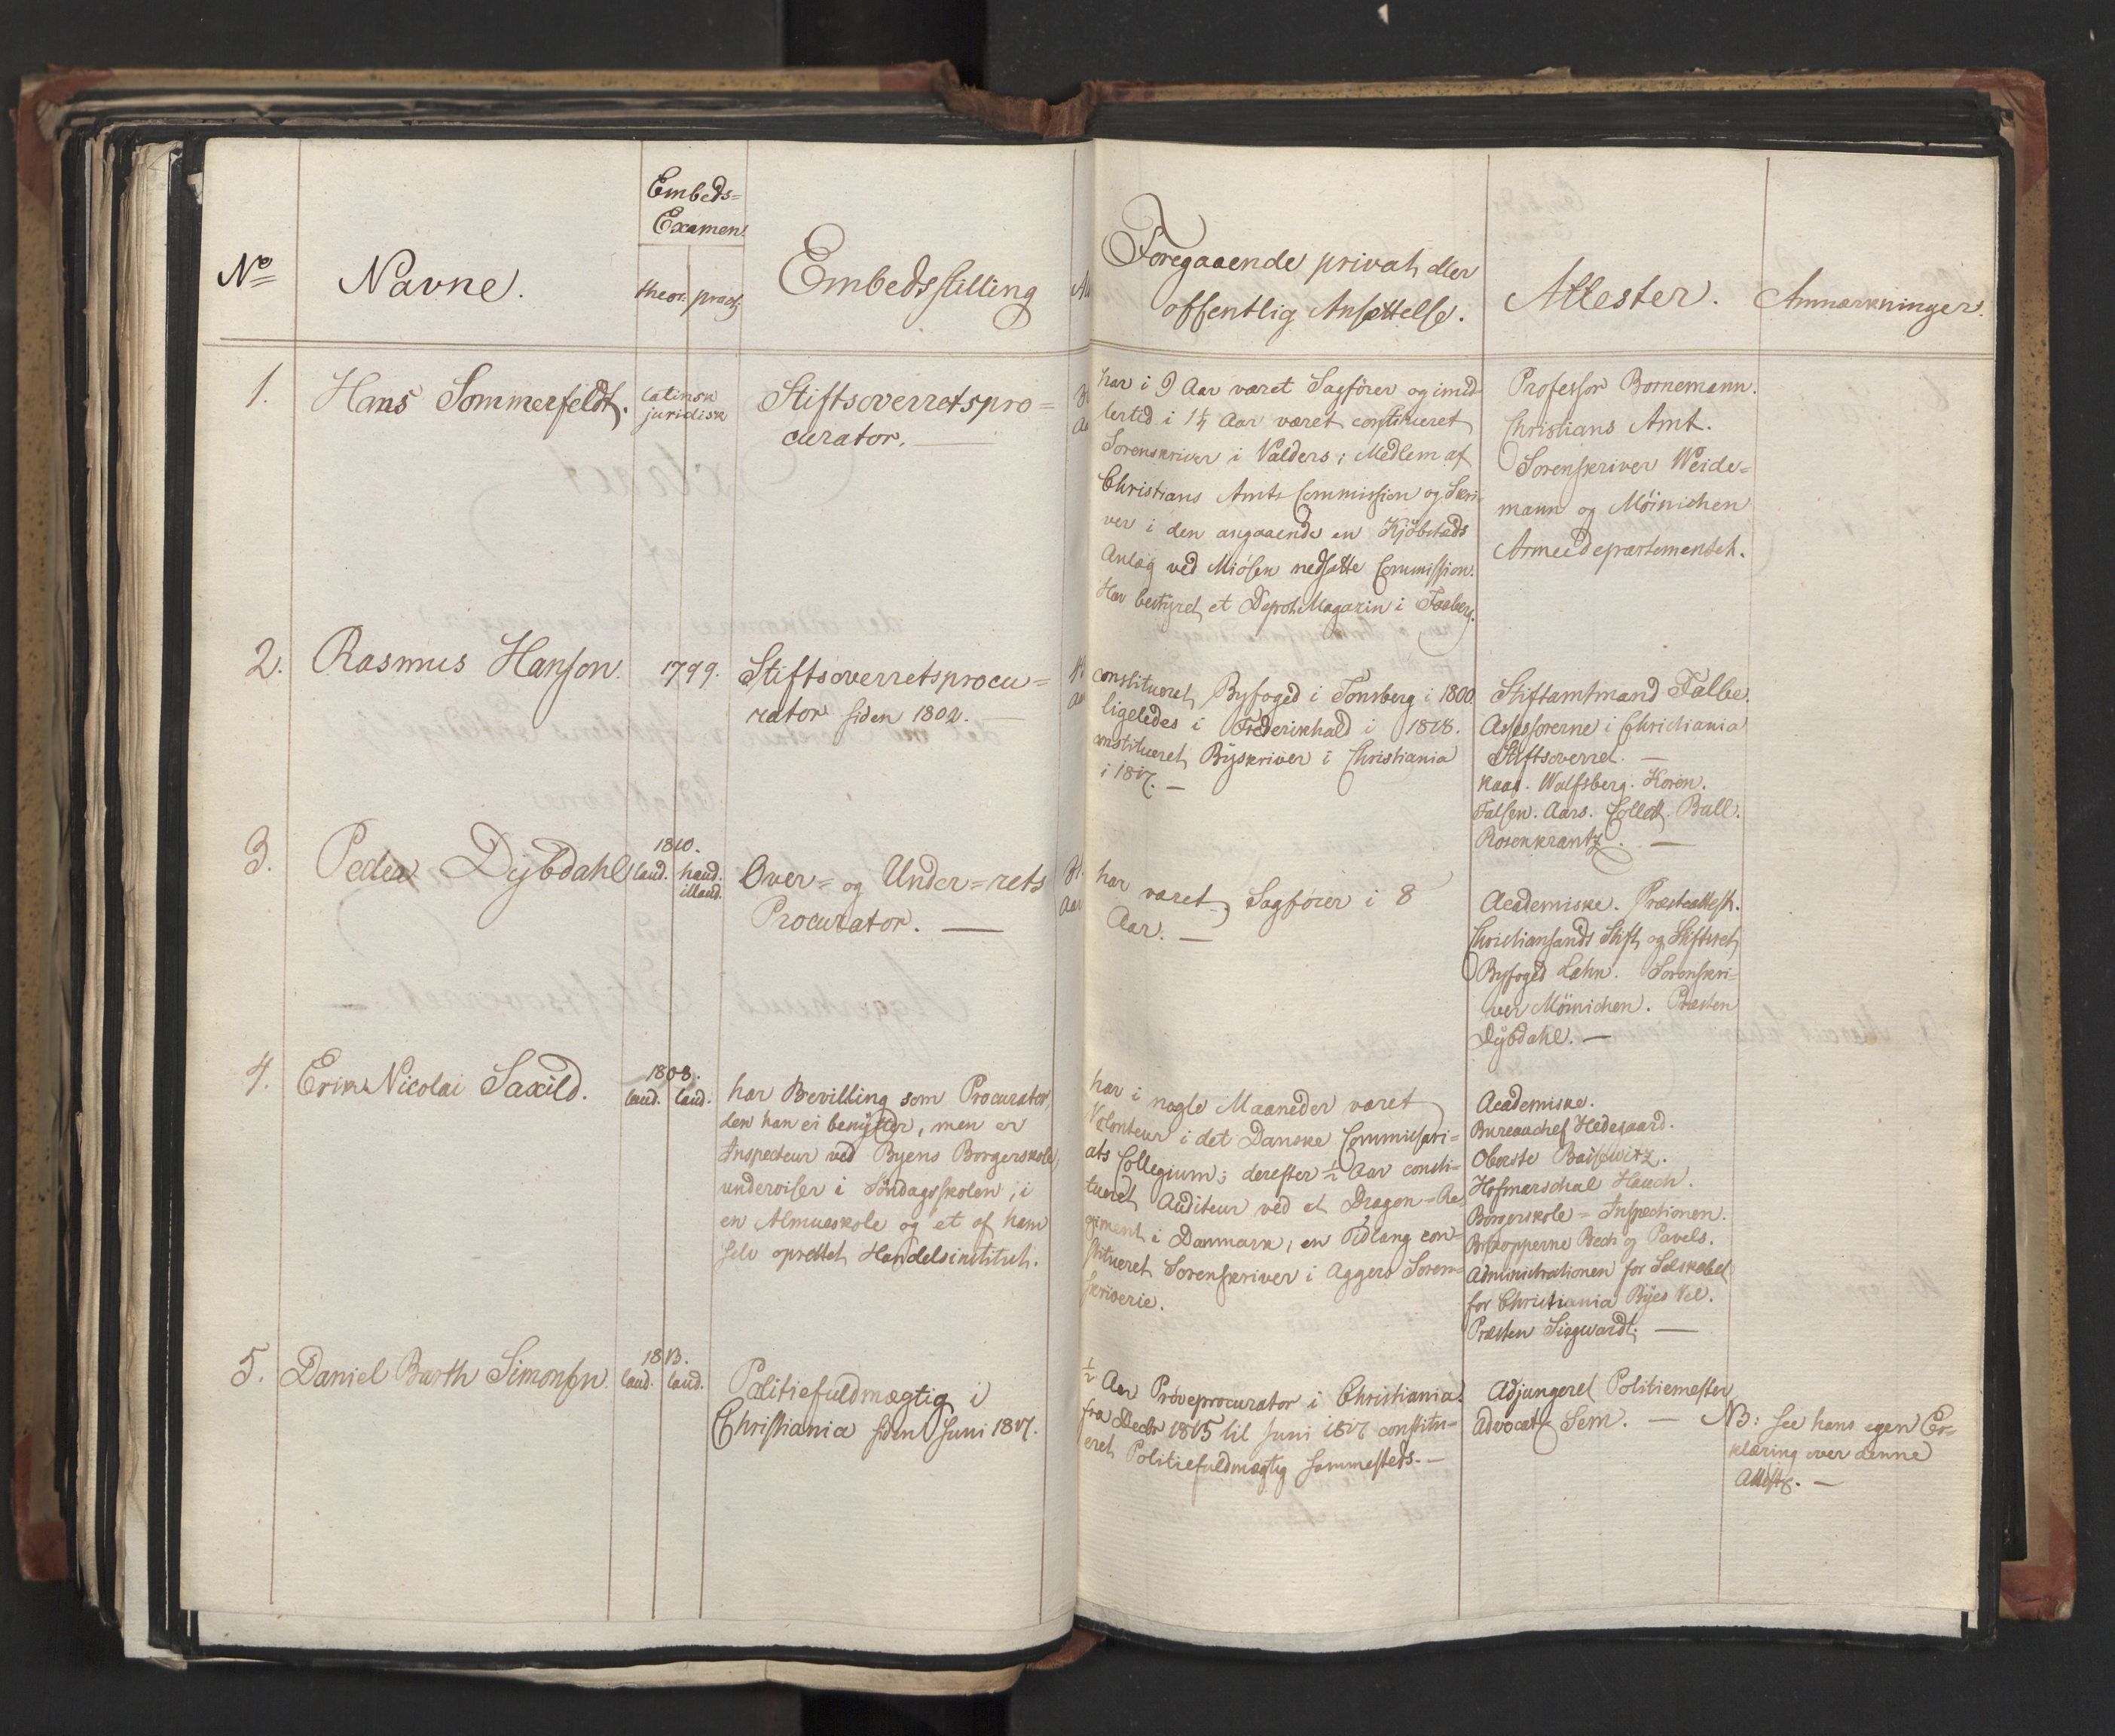 Embeds=
Examen.
No
Navne.
theor:
pract:
Embedsstilling
Foregaaende privat eller
offentlig Ansættelse.
Attester.
Anmærkninger.
1.
Hans Sommerfeldt.
Latinsk
juridisk
Stiftsoverretspro=
curator.
har i 9 Aar været Sagfører og imid-
lertid i 1¼ Aar været constitueret
Sorenskriver i Valders; Medlem af
Christians Amts Commission og Skri-
ver i den angaaende en Kjöbstæds
Anlæg ved Miösen nedsatte Commission.
Har bestyret et Depot Magazin i Faaberg.
Professor Bornemann.
Christians Amt.
Sorenskriver Weide=
mann og Möinichen
Armeedepartementet.
2.
Rasmus Hanson.
1799.
Stiftsoverretsprocu=
rator siden 1802. —
constitueret Byfoged i Tonsberg i 1800
ligeledes i Frederikhald i 1818.
constitueret Byskriver i Christiania
i 1817. —
Stiftamtmand Falbe.
Assessorerne i Christiania
Stiftsoverret. —
Kaas. Wulfsberg. Koren.
Falsen. Aars. Collett. Ball.
Rosenkrantz. —
3.
Peder Dybdahl
1810.
laud.
haud
illaud.
Over= og Under=rets
Procurator. —
har været Sagfører i 8
Aar. —
Academiske. Præsteattest.
Christiansands Stift og Stiftsret
Byfoged Lahn. Sorenskri-
ver Möinichen. Præsten
Dybdahl. —
4.
Erik Nicolai Saxild.
1808.
laud.
laud.
har Bevilling som Procurator,
den han ei benytter, men er
Inspecteur ved Byens Borgerskole,
underviser i Söndagsskolen, i
en Almueskole og et af ham
selv oprettet Handelsinstitut.
har i nogle Maaneder været
Volonteur i det Danske Commissari=
ats Collegium; derefter ½ Aar consti=
tueret Auditeur ved et Dragon-Re-
giment i Danmark, en Tidlang con=
stitueret Sorenskriver i Aggers Soren=
skriverie.
Academiske.
Bureauchef Hedegaard.
Oberste Baisewitz.
Hofmarschal Hauch.
Borgerskole=Inspectionen.
Biskopperne Bech og Pavels.
Administrationen for Selskabet
for Christiania Byes Vel.
Præsten Siegwardt. —
5.
Daniel Barth Simonsen.
1813.
laud.
laud.
Politiefuldmægtig i
Christiania siden Juni 1817.
½ Aar Pröveprocurator i Christiania.
fra Decbr 1815 til Juni 1817 constitu=
eret Politiefuldmægtig sammesteds. —
Adjungeret Politiemester
Advocat Sem. —
NB: see hans egen Er=
klæring over denne
Attest. —